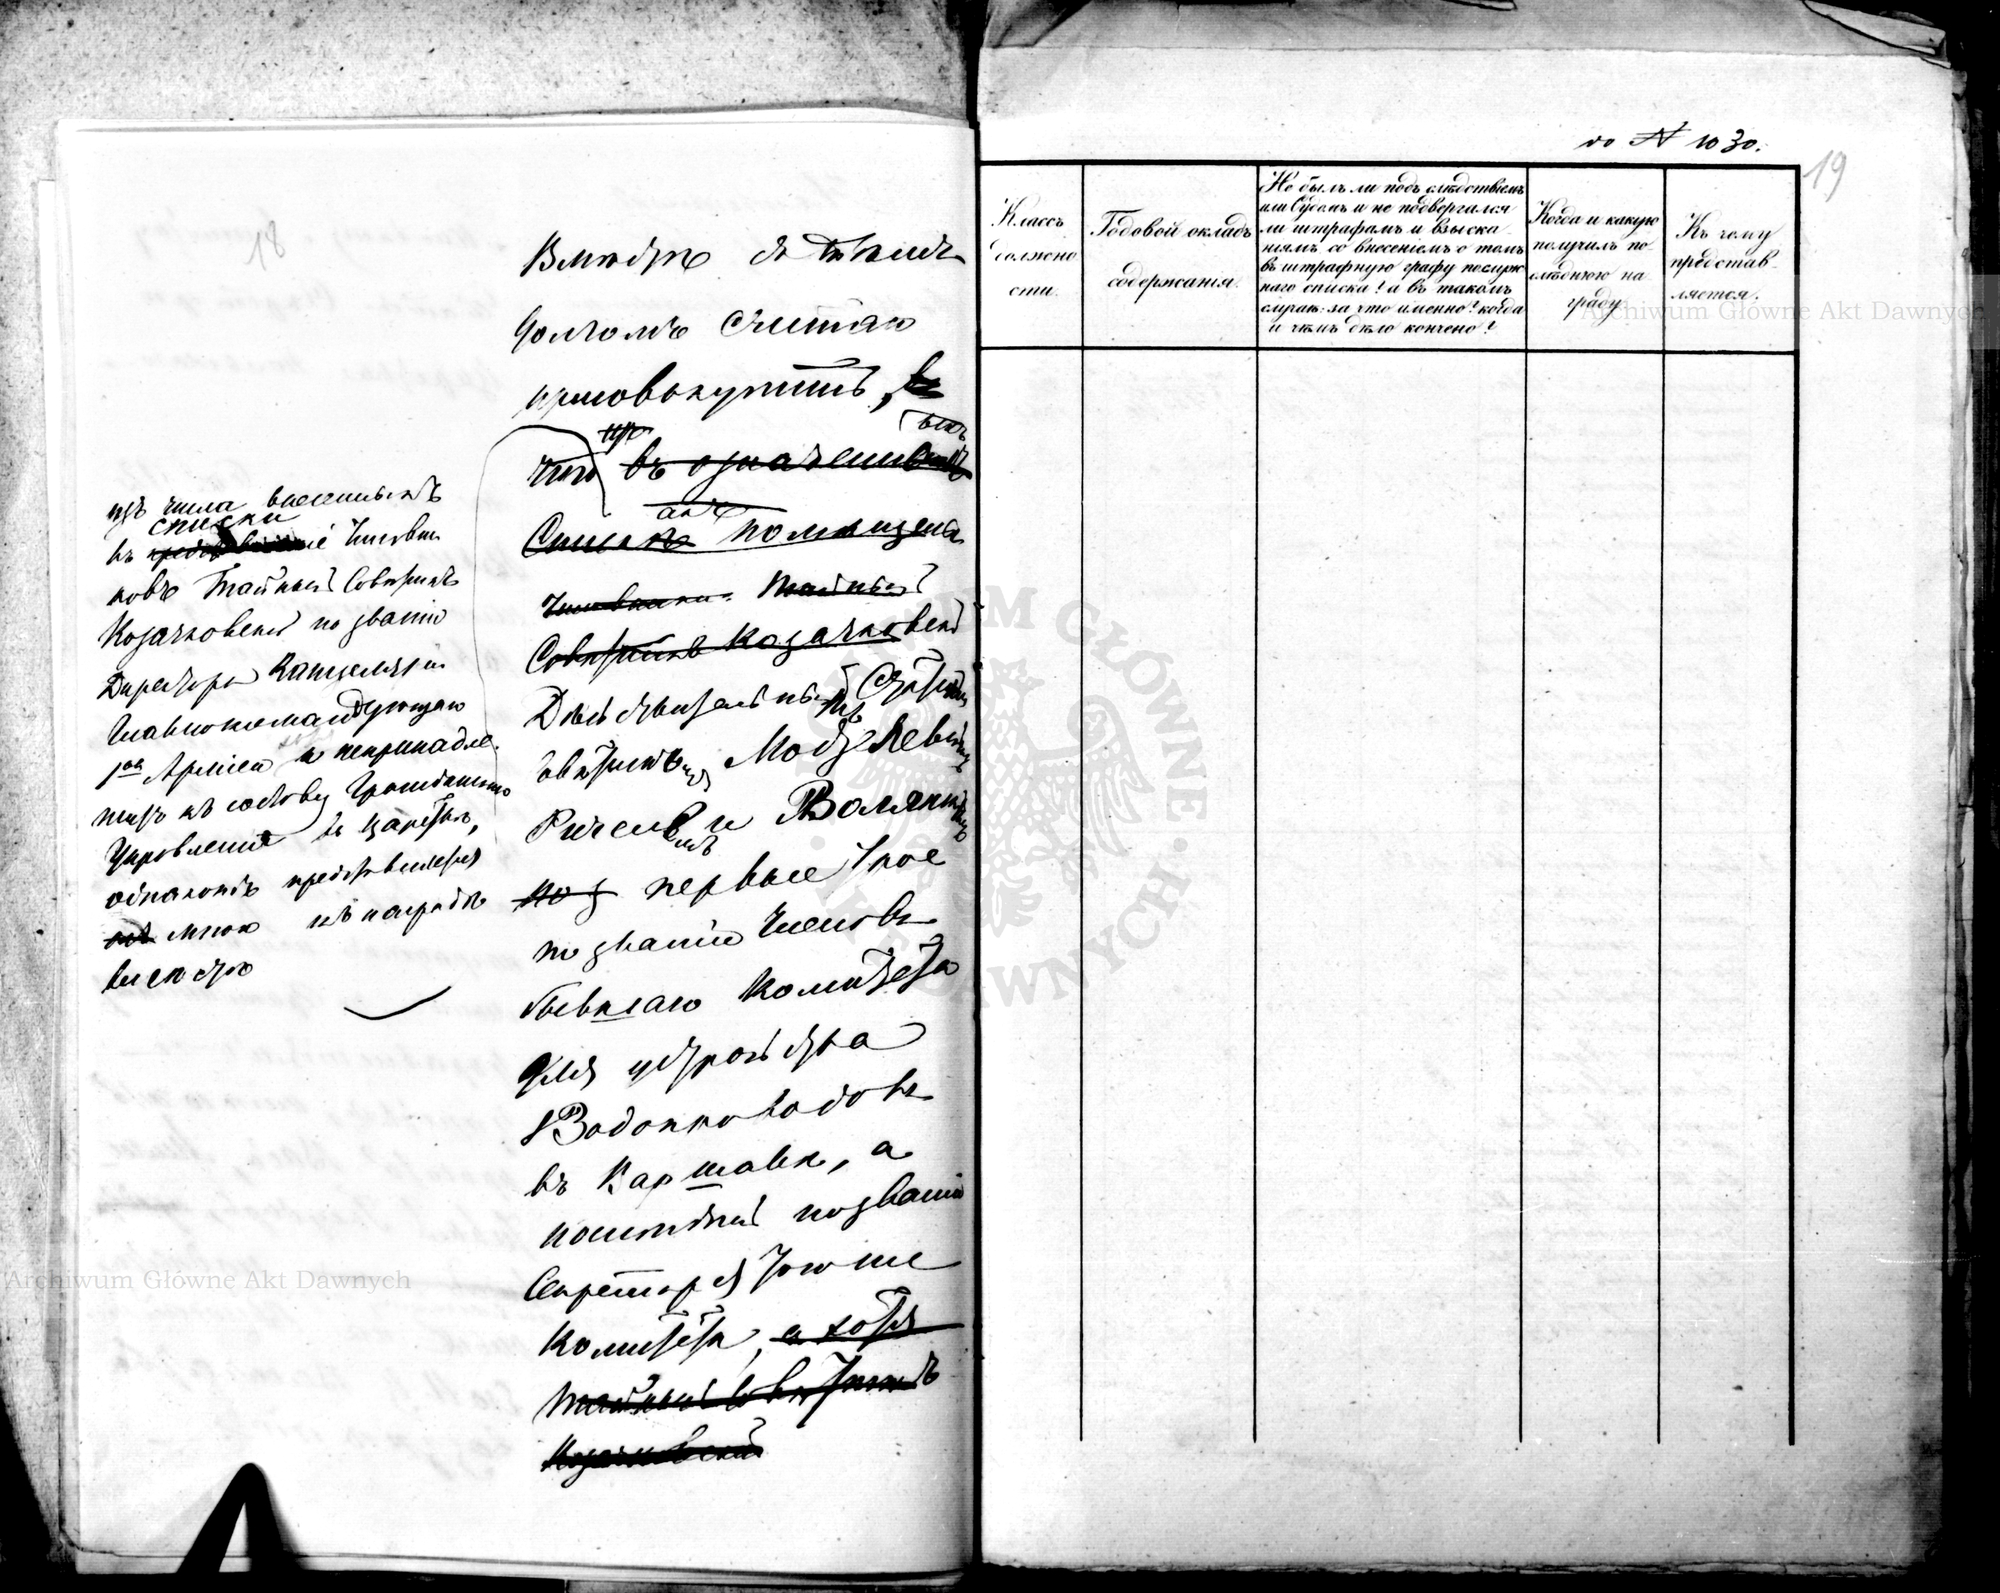 18
Вместе съ темъ
долгомъ считаю
присовокупить, въ
что въ означенный
Списокъ помещены
Чиновники: Тайный
Советникъ Козачковскій
Действительный Статскій
Советникъ
и Волянскій
первые трое
по званію Членовъ
бывшаго Комитета
для устройства
Водопроводовъ
въ Варшаве, а
последній по званію
Секретаря того же
Комитета, а хотя
Тайный Советникъ
Козачковскій
изъ числа внесенныхъ
списки
въ Чинов
никовъ Тайный Советникъ
Козачковскій по званію
Директора Канцеляріи
Главнокомандующаго
1ою Арміею и непринадле-
житъ къ составу Гражданскаго
Управленія въ Царстве,
однакожъ представляется
мною къ награде
до № 1030.
19
Классъ должности.
Годовой окладъ содержанія.
Не былъ ли подъ следствіемъ
или Судомъ и не подвергался
ли штрафамъ и взыска-
ніямъ со внесеніемъ о томъ
въ штрафную графу послуж-
наго списка? а въ такомъ
случае: за что именно? когда
и чемъ дело кончено?
Когда и какую
получилъ по-
следнюю на-
граду
Къ чему
представ-
ляется.
Archiwum Główne Akt Dawnych
Archiwum Główne Akt Dawnych